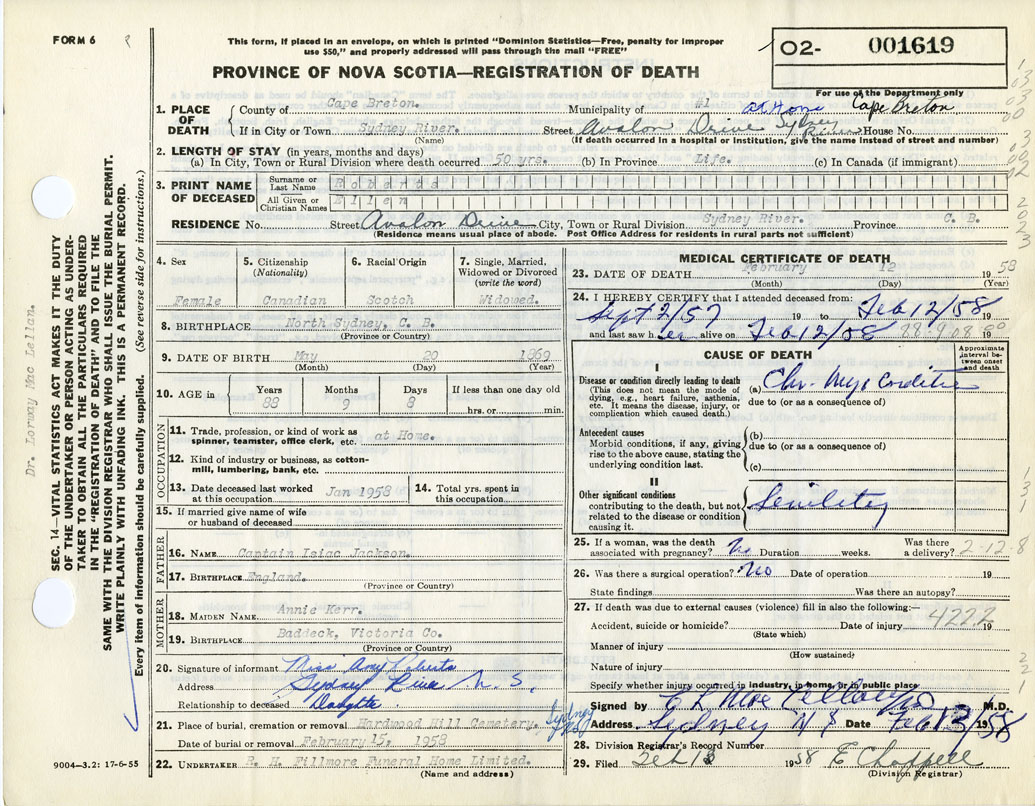 FORM 6
This form, if placed in an envelope, on which is printed "Dominion Statistics—Free, penalty for improper
use $50," and properly addressed will pass through the mail "FREE"
102- 001619
PROVINCE OF NOVA SCOTIA—REGISTRATION OF DEATH
For use of the Department only
1. PLACE OF DEATH
County of Cape Breton. Municipality of #1 at Home Cape Breton
If in City or Town Sydney River. Street Avalon Drive Sydney River House No.
(Name) (If death occurred in a hospital or institution, give the name instead of street and number)
2. LENGTH OF STAY (in years, months and days)
(a) In City, Town or Rural Division where death occurred 50 yrs. (b) In Province Life. (c) In Canada (if immigrant)
3. PRINT NAME OF DECEASED
Surname or Last Name Roberts
All Given or Christian Names Ellen
RESIDENCE No. Street Avalon Drive City, Town or Rural Division Sydney River. Province C. B.
(Residence means usual place of abode. Post Office Address for residents in rural parts not sufficient)
4. Sex Female
5. Citizenship (Nationality) Canadian
6. Racial Origin Scotch
7. Single, Married, Widowed or Divorced (write the word) Widowed.
8. BIRTHPLACE North Sydney, C. B.
(Province or Country)
9. DATE OF BIRTH May 20 1869
(Month) (Day) (Year)
10. AGE in Years 88 Months 9 Days 8 If less than one day old hrs. or min.
OCCUPATION
11. Trade, profession, or kind of work as spinner, teamster, office clerk, etc. at Home.
12. Kind of industry or business, as cotton-mill, lumbering, bank, etc.
13. Date deceased last worked at this occupation Jan 1958
14. Total yrs. spent in this occupation
15. If married give name of wife or husband of deceased
FATHER
16. NAME Captain Isiac Jackson.
17. BIRTHPLACE England.
(Province or Country)
MOTHER
18. MAIDEN NAME Annie Kerr.
19. BIRTHPLACE Baddeck, Victoria Co.
(Province or Country)
20. Signature of informant Miss Amy Roberts
Address Sydney River N. S.
Relationship to deceased Daughter.
21. Place of burial, cremation or removal Hardwood Hill Cemetery. Sydney N.S.
Date of burial or removal February 15, 1958
22. UNDERTAKER B. H. Fillmore Funeral Home Limited.
(Name and address)
9004—3.2: 17-6-55
MEDICAL CERTIFICATE OF DEATH
23. DATE OF DEATH February 12 1958
(Month) (Day) (Year)
24. I HEREBY CERTIFY that I attended deceased from:
Sept 2/57 19 to Feb 12/58 19
and last saw her alive on Feb 12/58 19
CAUSE OF DEATH
Approximate interval between onset and death
I
Disease or condition directly leading to death
(This does not mean the mode of dying, e.g., heart failure, asthenia, etc. It means the disease, injury, or complication which caused death.)
(a) Chr- Myocarditis
due to (or as a consequence of)
Antecedent causes
Morbid conditions, if any, giving rise to the above cause, stating the underlying condition last.
(b)
due to (or as a consequence of)
(c)
II
Other significant conditions contributing to the death, but not related to the disease or condition causing it.
Senility
25. If a woman, was the death associated with pregnancy? No Duration weeks. Was there a delivery? 2-12-8
26. Was there a surgical operation? No Date of operation 19
State findings Was there an autopsy?
27. If death was due to external causes (violence) fill in also the following:—
Accident, suicide or homicide? Date of injury 4222 19
(State which)
Manner of injury
(How sustained)
Nature of injury
Specify whether injury occurred in industry, in home, or in public place
Signed by M.D.
Address Sydney N S Date Feb 13/58 19
28. Division Registrar's Record Number
29. Filed Feb 13 1958 E Chappell
(Division Registrar)
SEC. 14—VITAL STATISTICS ACT MAKES IT THE DUTY
OF THE UNDERTAKER OR PERSON ACTING AS UNDER-
TAKER TO OBTAIN ALL THE PARTICULARS REQUIRED
IN THE "REGISTRATION OF DEATH" AND TO FILE THE
SAME WITH THE DIVISION REGISTRAR WHO SHALL ISSUE THE BURIAL PERMIT.
WRITE PLAINLY WITH UNFADING INK. THIS IS A PERMANENT RECORD.
Every item of information should be carefully supplied. (See reverse side for instructions.)
Dr. Lorway Mac Lellan.